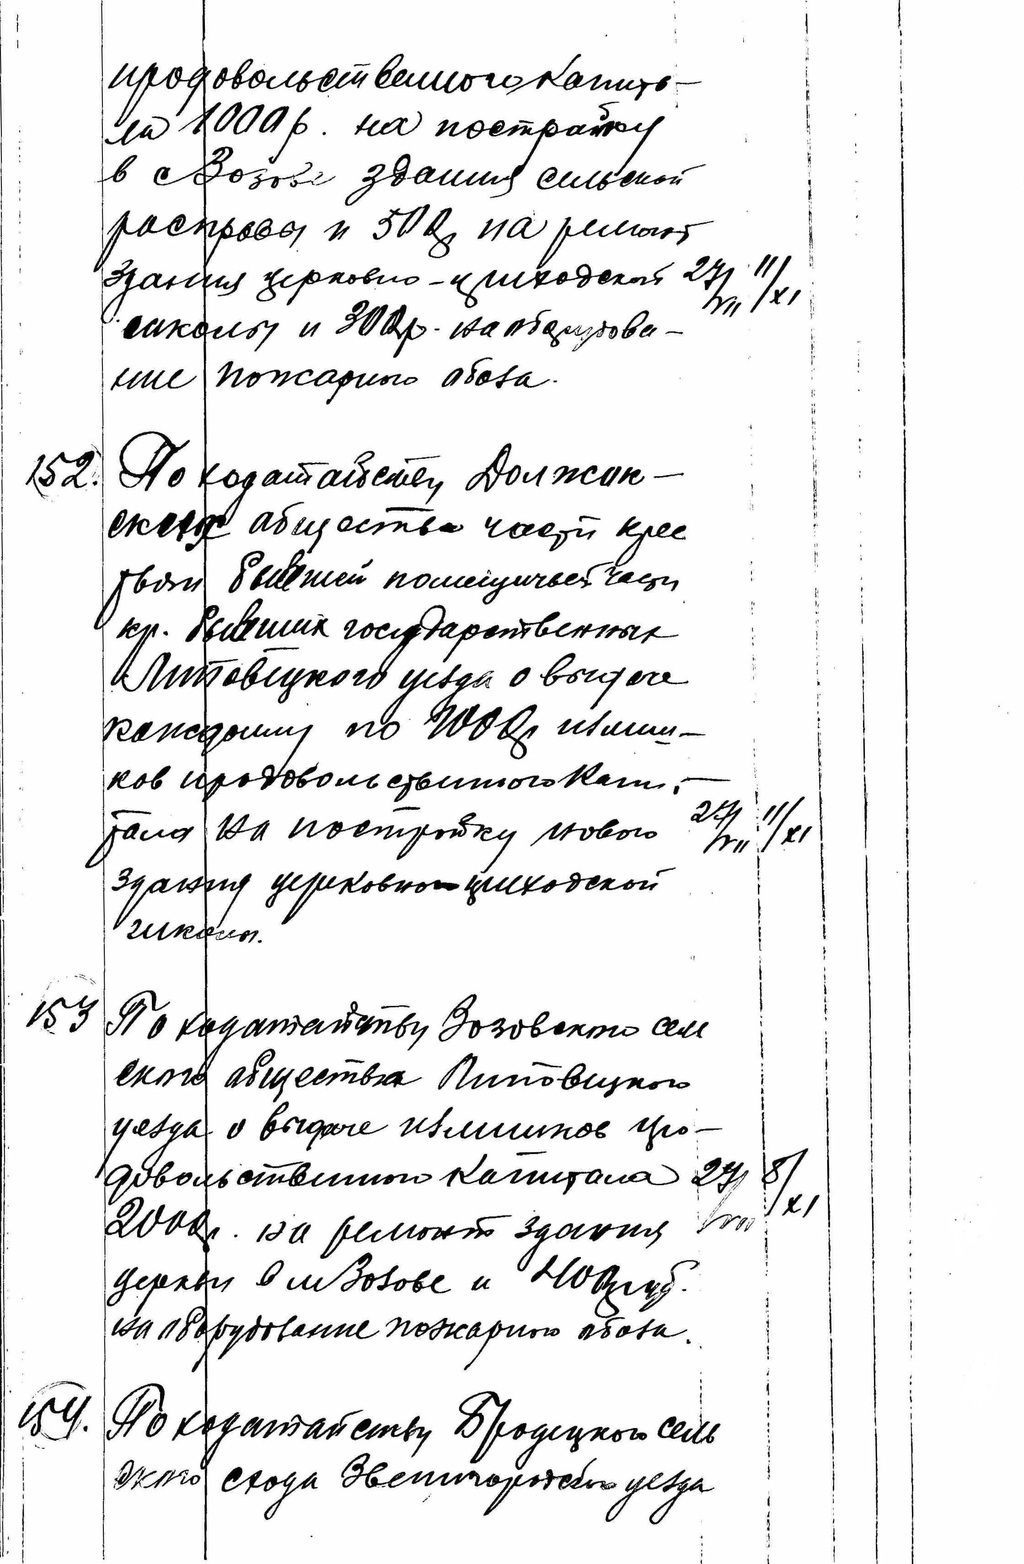 продовольственного капита-
ла 1000 р. на постройку
в с Возове здания сельской
расправы и 500 р на ремонт
здания церковно-приходской 27/VII 11/XI
школы и 300 р. на оборудова-
ние пожарного обоза.
152. По ходатайству Должок-
ских общества части крес
тьян бывшей помещичьей части
кр. бывших государственных
Липовецкого уезда о выдаче
каждому по р излиш-
ков продовольственного капи-
тала на постройку нового 27/VII 11/XI
здания церковно приходской
школы.
153 По ходатайству Возовского сель
ского общества Липовецкого
уезда о выдаче излишков про-
довольственного капитала 27/VII 8/XI
2000 р. на ремонт здания
церкви в м Возове и 400 руб.
на оборудование пожарного обоза.
154. По ходатайству Бродецкого сель
ского схода Звенигородского уезда